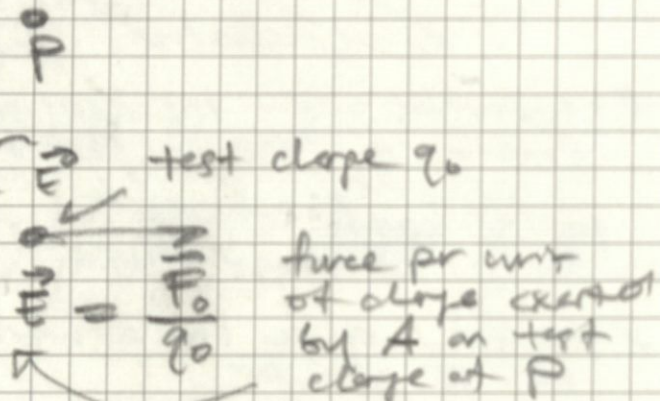 P
E⃗ test charge q₀
E⃗ = F⃗₀ / q₀
force per unit
of charge exerted
by A on test
charge at P